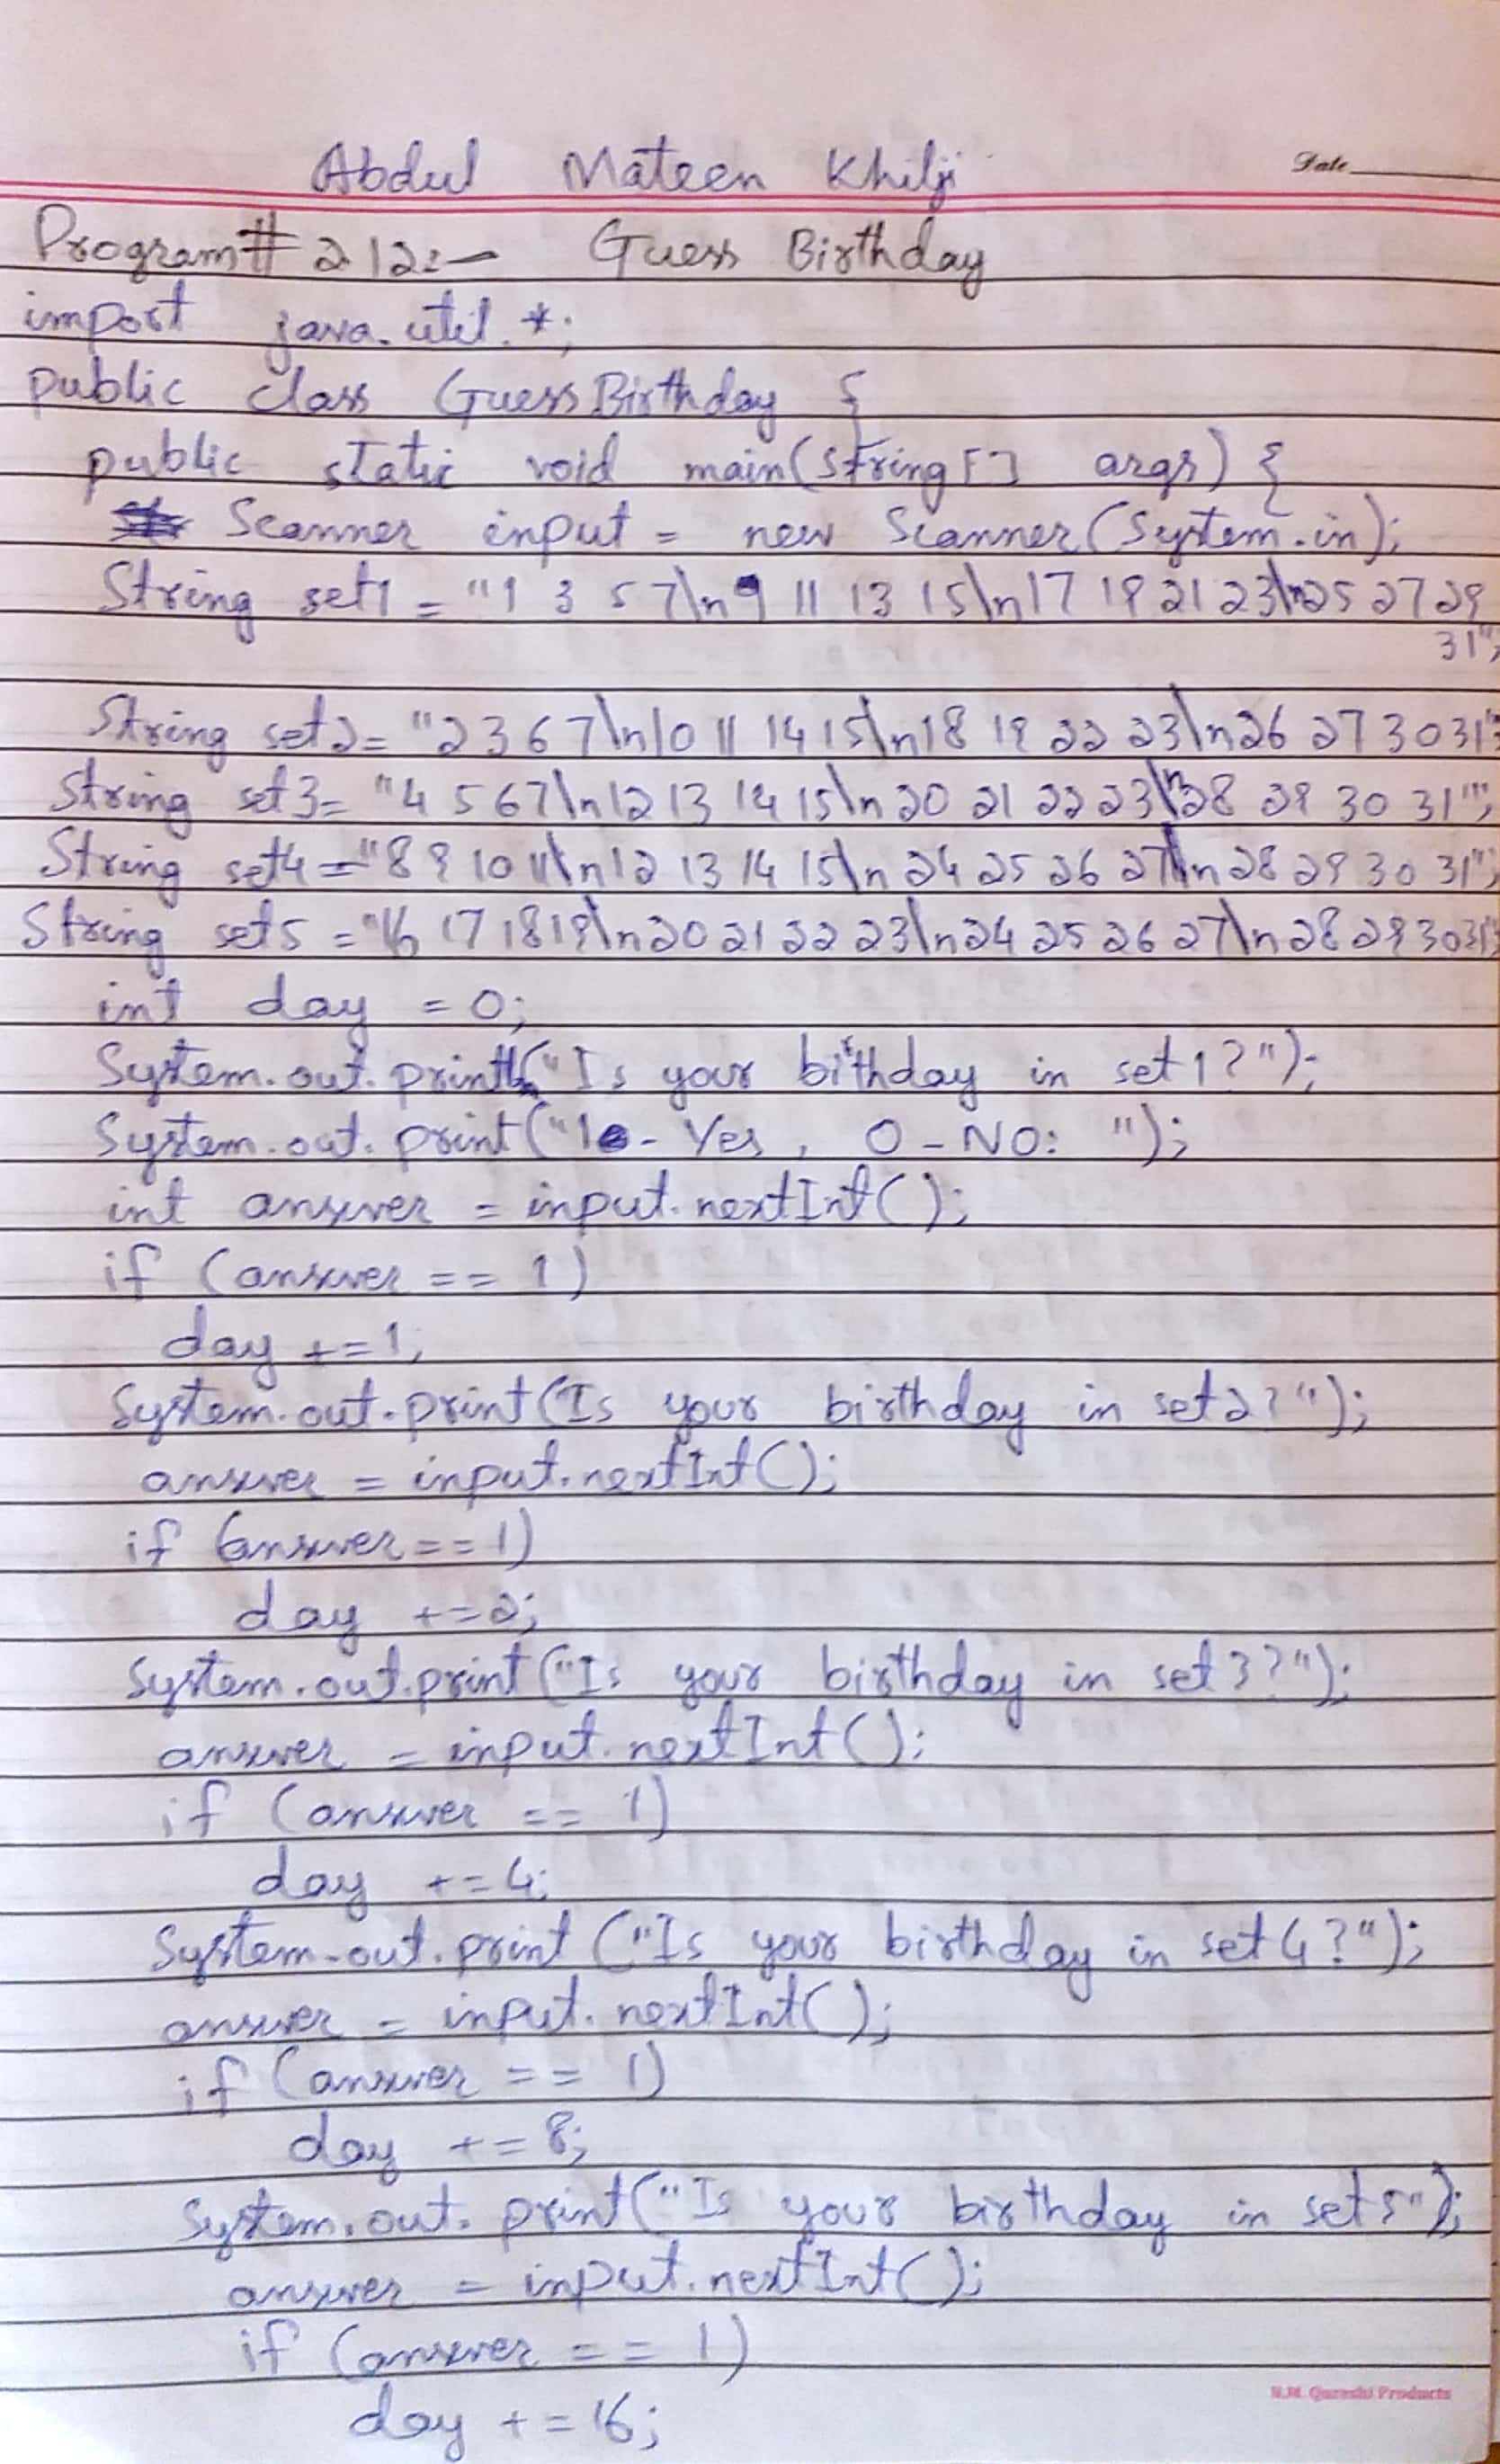 Abdul Mateen Khilji
Date
Program# 212:-   Guess Birthday
import java.util.*;
public class GuessBirthday {
public static void main(String[] args) {
Scanner input = new Scanner(System.in);
String set1 = "1 3 5 7\n9 11 13 15\n17 19 21 23\n25 27 29
31";
String set2= "2 3 6 7\n10 11 14 15\n18 19 22 23\n26 27 30 31";
String set3= "4 5 6 7\n12 13 14 15\n20 21 22 23\n28 29 30 31";
String set4="8 9 10 11\n12 13 14 15\n24 25 26 27\n28 29 30 31";
String set5 = "16 17 18 19\n20 21 22 23\n24 25 26 27\n28 29 30 31";
int day = 0;
System.out.println("Is your birthday in set1?");
System.out.print("1 - Yes, 0 - NO: ");
int answer = input.nextInt();
if (answer == 1)
day +=1;
System.out.print(Is your birthday in set2?");
answer = input.nextInt();
if (answer==1)
day +=2;
System.out.print("Is your birthday in set3?");
answer = input.nextInt();
if (answer == 1)
day +=4;
System.out.print("Is your birthday in set4?");
answer = input.nextInt();
if (answer == 1)
day +=8;
System.out.print("Is your birthday in set5");
answer = input.nextInt();
if (answer == 1)
N.M. Qureshi Products
day +=16;